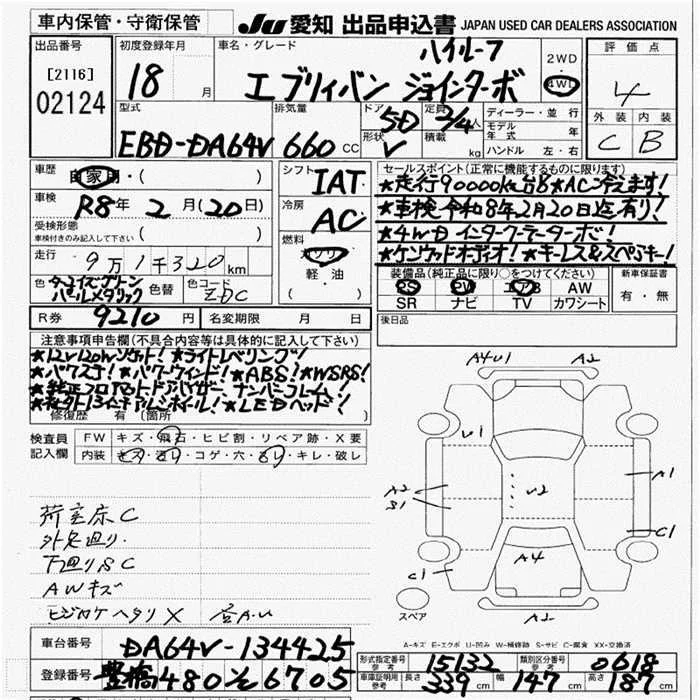 車内保管・守衛保管
JU 愛知 出品申込書 JAPAN USED CAR DEALERS ASSOCIATION
出品番号 [2116] 02124
初度登録年月 18 月
車名・グレード ハイルーフ
エブリィバン ジョインターボ
2WD 4WD
評価点 4
外装 内装
C B
型式 EBD-DA64V
排気量 660 cc
ドア 5D 形状 V
定員 2/4人 積載 kg
ディーラー・並行
モデル年式 年
ハンドル 左・右
車歴 自家用・( )
車検 R8年 2月(20日)
受検形態 車検付きのみ記入して下さい ( )
走行 9万1千320km
色 ターコイズグリーンパールメタリック 色替 色コード ZDC
シフト IAT
冷房 AC
燃料 ガソリン 軽油 ( )
セールスポイント(正常に機能するものに限ります)
★走行90000km台8★AC冷えます!
★車検令和8年2月20日迄有り!
★4WDインタークーラーターボ!
★ケンウッドオーディオ!★キーレス&スペアキー!
装備品(純正品に限り○をつけてください)
PS PW エアB AW
SR ナビ TV カワシート
新車保証書 有・無
R券 9210円 名変期限 月 日
後日品
注意事項申告欄(不具合内容等は具体的に記入して下さい)
★12V120Wソケット!★ライトレベリング!
★パワステ!★パワーウィンド!★ABS!★WSRS!
★純正フロアマット ドアバイザー ナンバーフレーム!
★社外13インチアルミホイール!★LEDヘッド!
修復歴 有(箇所 )
検査員記入欄
FW キズ・飛石・ヒビ割・リペア跡・X要
内装 キズ・汚レ・コゲ・穴・スレ・キレ・破レ
荷室床C
外足廻り
下廻りSC
AWキズ
ヒジカケヘタリX
A4U1 A2
U1
A1
A2
S1
U2
C1
A4
C1
A2
スペア
A-キズ E-エクボ U-凹み W-補修跡 S-サビ C-腐食 XX-交換済
車台番号 DA64V-134425
登録番号 豊橋480 る 6705
形式指定番号 参考 15132 類別区分番号 参考 0618
車庫証明用 参考 長さ 339cm 幅 147cm 高さ 187cm